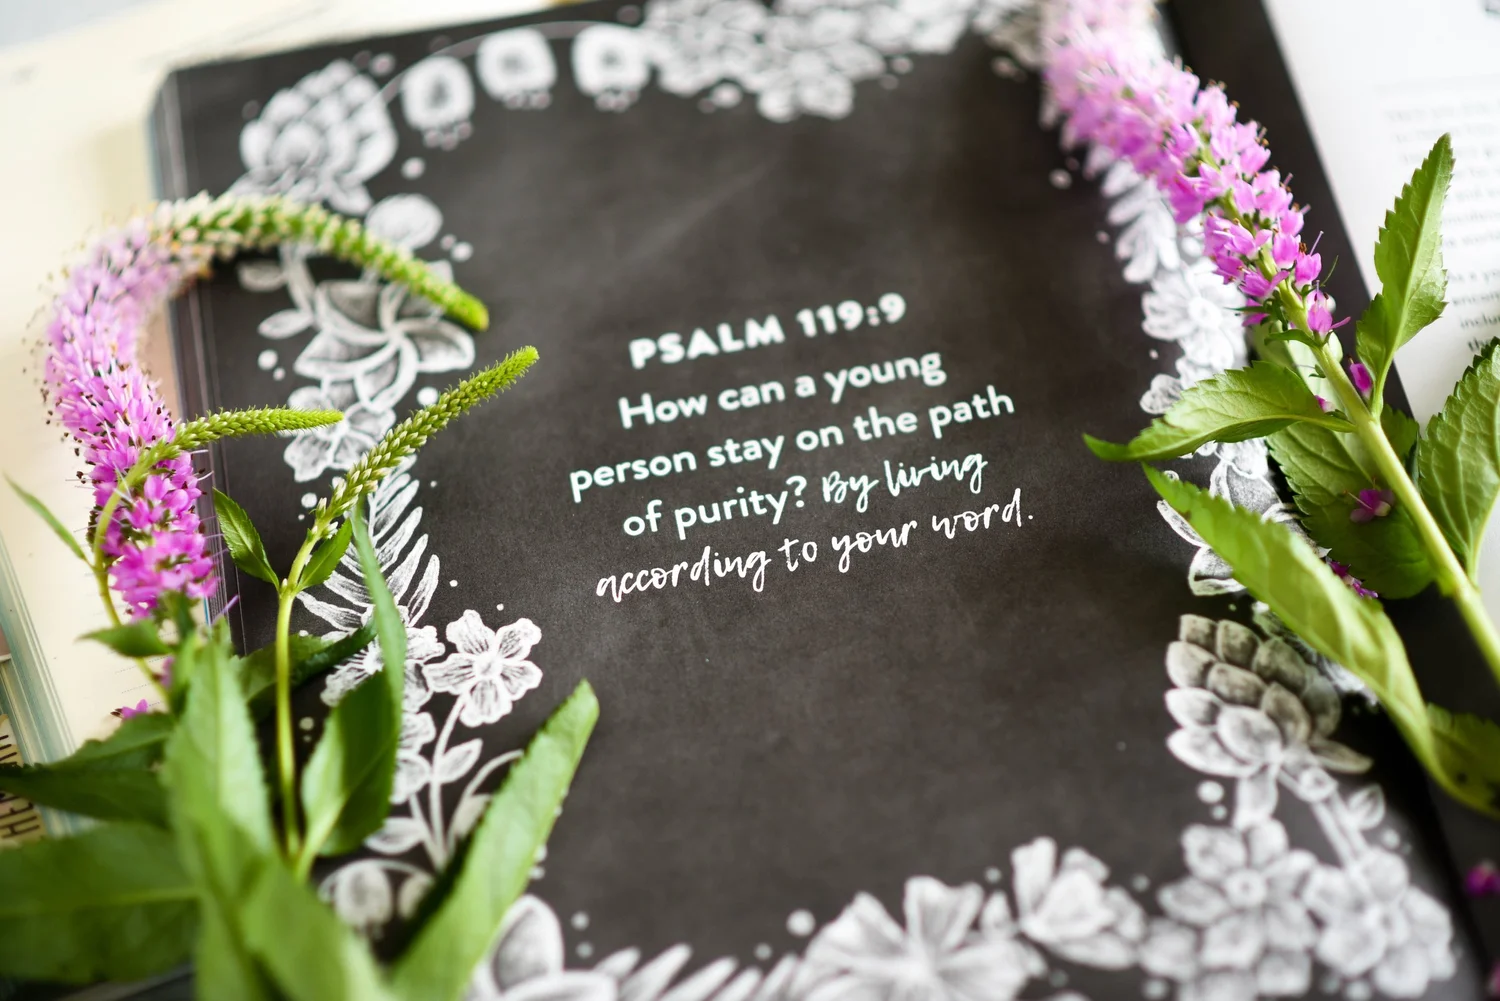 PSALM 119:9
How can a young
person stay on the path
of purity? By living
according to your word.